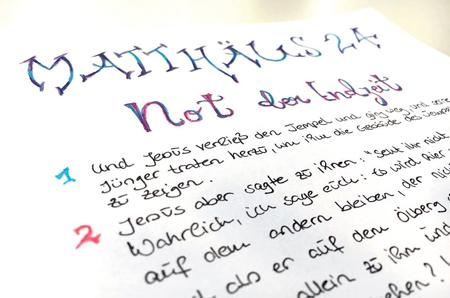 MATTHÄUS 24
Not der Endzeit
1 Und Jesus verließ den Tempel und ging weg, und seine
Jünger traten herzu, um ihm die Gebäude des Tempels
zu zeigen.
2 Jesus aber sagte zu ihnen: "Seht ihr nicht
Wahrlich, ich sage euch: Es wird hier
auf dem andern bleiben, der nicht
als er auf dem Ölberg
allein zu ihm und